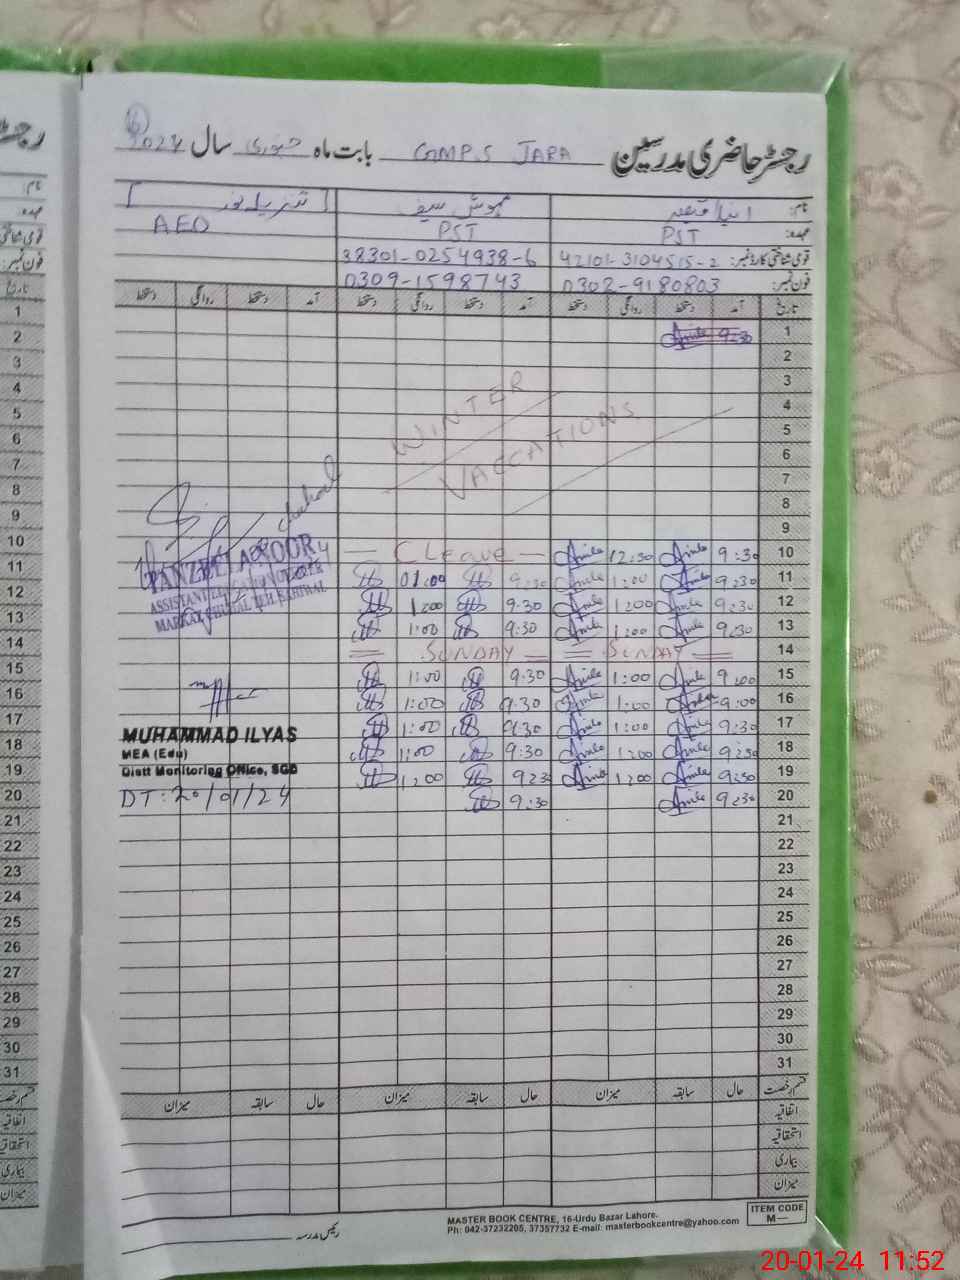 رجسٹر حاضری مدرسین GMPS JARA بابت ماہ جنوری سال 2024
نام:
مہوش سیف
تنزیلہ نور
عہدہ: PST PST AEO
قومی شناختی کارڈ نمبر: 42101-3104515-2 38301-0254938-6
فون نمبر: 0302-9180803 0309-1598743
تاریخ آمد دستخط روانگی دستخط آمد دستخط روانگی دستخط آمد دستخط روانگی دستخط
1 9:30
2
3
4
5
6
7
8
9
WINTER
VACCATIONS
10 9:30 12:30 C Leave
11 9:30 1:00 9:30 01:00
12 9:30 1:00 9:30 1:00
13 9:30 1:00 9:30 1:00
14 SUNDAY SUNDAY
15 9:00 1:00 9:30 1:00
16 9:00 1:00 9:30 1:00
17 9:30 1:00 9:30 1:00
18 9:30 1:00 9:30 1:00
19 9:30 1:00 9:30 1:00
20 9:30 9:30
21
22
23
24
25
26
27
28
29
30
31
TANZEELA NOOR
ASSISTANT EDUCATION OFFICER
MUHAMMAD ILYAS
MEA (Edu)
Distt Monitoring Office, SGD
DT: 20/01/24
قسم رخصت حال سابقہ میزان حال سابقہ میزان حال سابقہ میزان
اتفاقیہ
استحقاقیہ
بیماری
میزان
رئیس مدرسہ
MASTER BOOK CENTRE, 16-Urdu Bazar Lahore.
Ph: 042-37232205, 37357732 E-mail: masterbookcentre@yahoo.com
ITEM CODE
M—
رجسٹر
نام:
عہدہ
قومی شناختی
فون نمبر:
تاریخ
1
2
3
4
5
6
7
8
9
10
11
12
13
14
15
16
17
18
19
20
21
22
23
24
25
26
27
28
29
30
31
قسم رخصت
اتفاقیہ
استحقاقیہ
بیماری
میزان
20-01-24 11:52